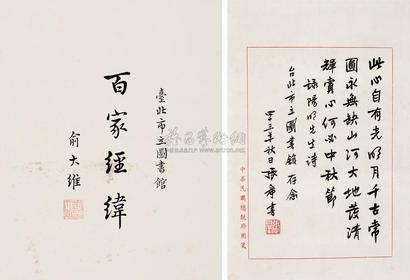 臺北市立圖書館
百家經緯
俞大維
此心自有光明月千古常
圓永無缺山河大地發清
輝賞心何必中秋節
錄陽明先生詩
台北市立圖書館存念
年秋日
中華民國總統府用箋